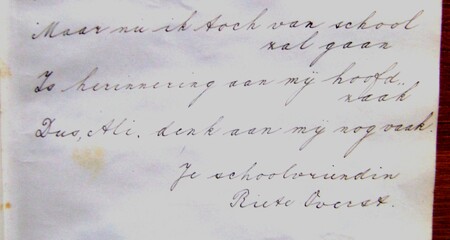 Maar nu ik toch van school
zal gaan
Is herinnering aan mij hoofd..
zaak
Dus, Ali. denk aan mij nog vaak.
Je schoolvriendin
Riete Overst.